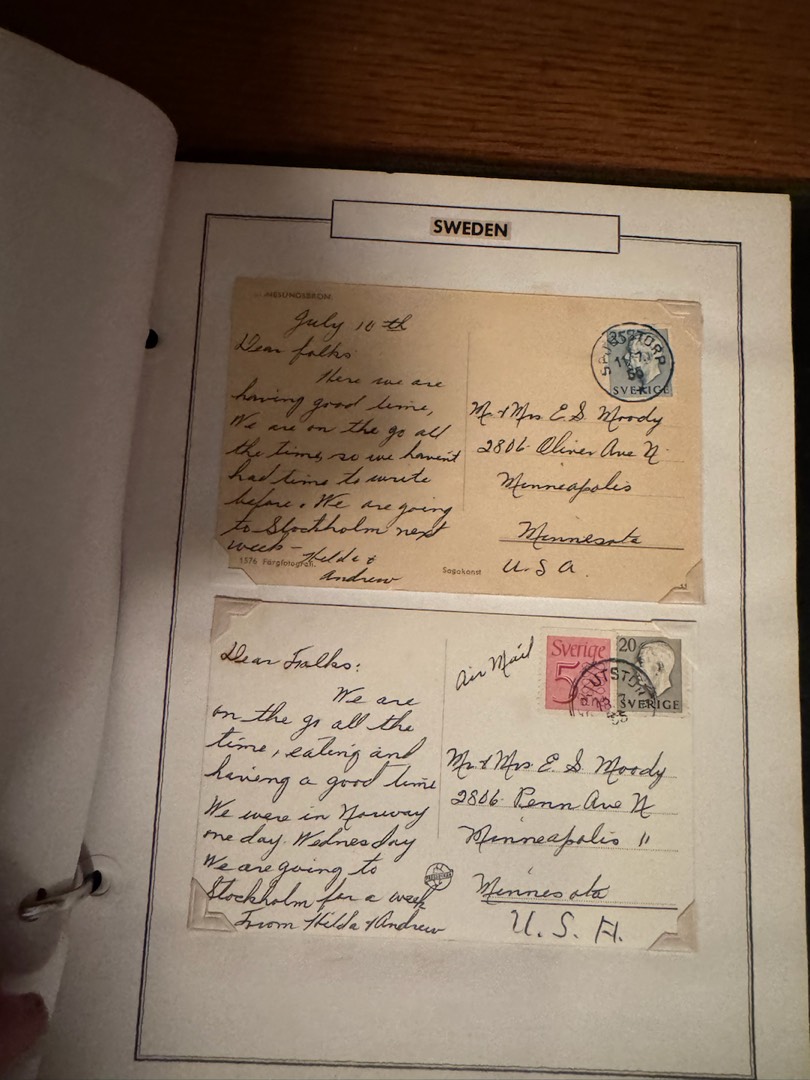 SWEDEN
July 10th
Dear folks
Here we are
having good time,
We are on the go all
the time, so we havent
had time to write
before. We are going
to Stockholm next
week - Hilda &
Andrew
1576 Färgfotografi.
Sagakonst
SVERIGE
Mr & Mrs E. S. Moody
2806 Oliver Ave N
Minneapolis
Minnesota
U. S A.
Dear Folks:
We are
on the go all the
time, eating and
having a good time
We were in Norway
one day. Wednesday
We are going to
Stockholm for a week
From Hilda & Andrew
Air Mail
Sverige
20
SVERIGE
Mr & Mrs E. S. Moody
2806 Penn Ave N
Minneapolis 11
Minnesota
U. S. A.